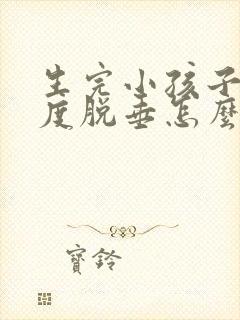 生完小孩子
度脱垂怎麼
寶鈴